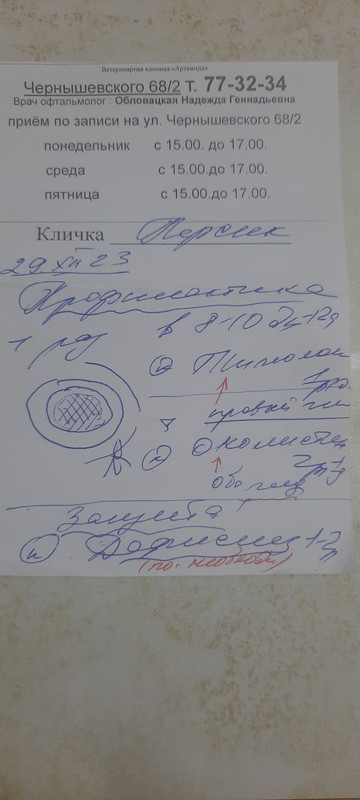 Ветеринарная клиника «Артемида»
Чернышевского 68/2 т. 77-32-34
Врач офтальмолог : Обловацкая Надежда Геннадьевна
приём по записи на ул. Чернышевского 68/2
понедельник с 15.00. до 17.00.
среда с 15.00.до 17.00.
пятница с 15.00.до 17.00.
Кличка Персик
29 XII 23
Профилактика
1 раз в 8-10
Тимолол
1 раз
правый
Окомистин
оба
Защита